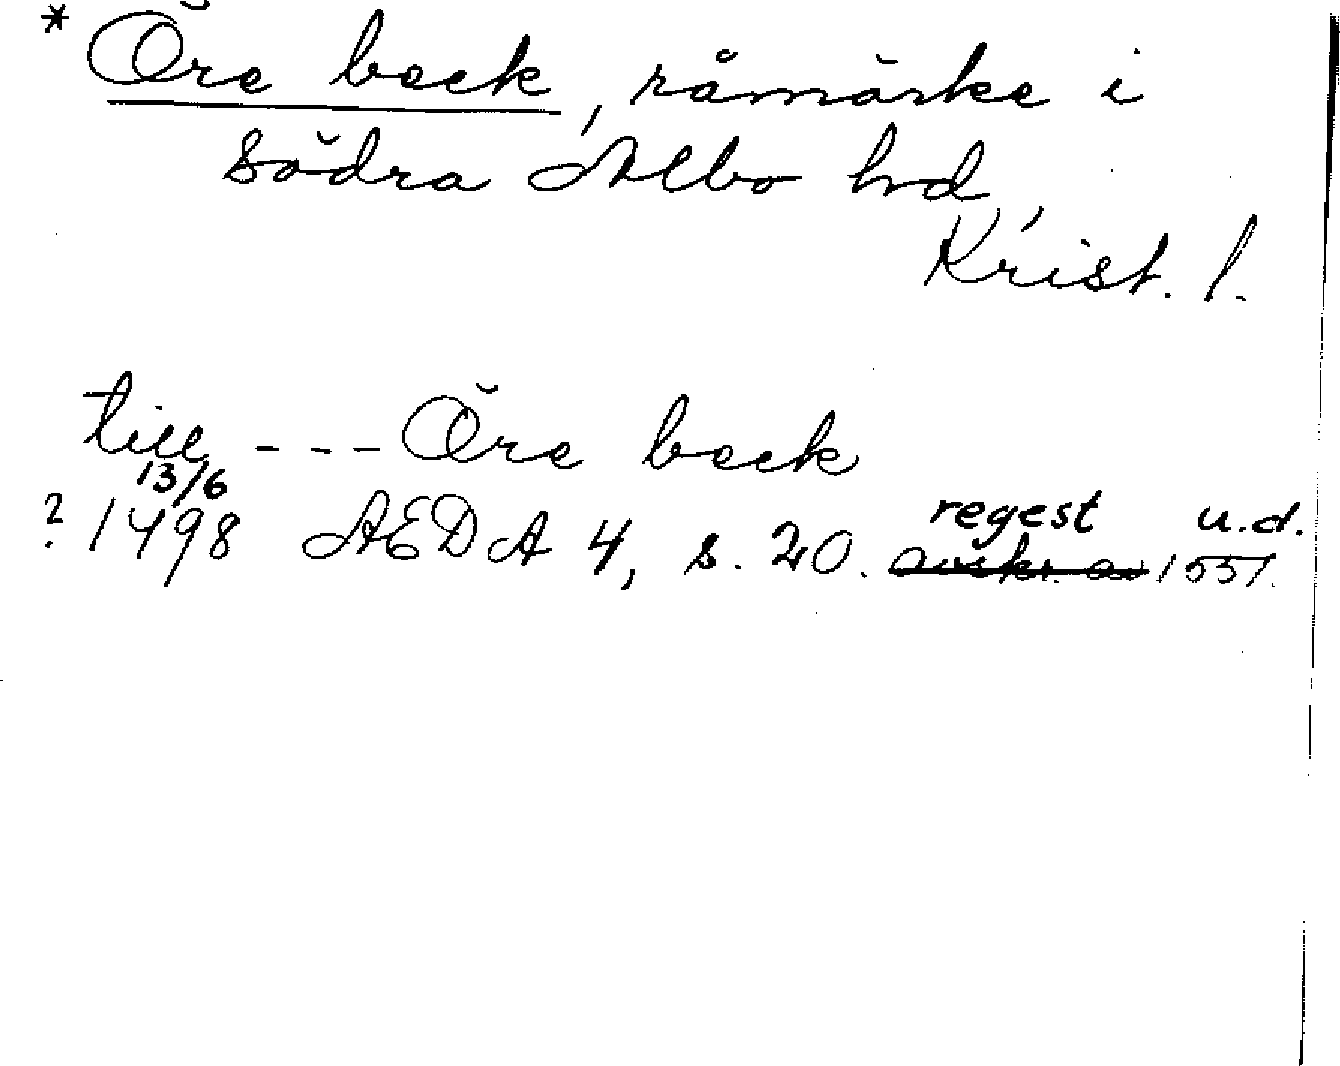 * Öre beck, råmärke i
södra Albo hd,
Krist. l.
till - - - Öre beck
13/6
? 1498 AEDA 4, s. 20. regest u.d. 1551.